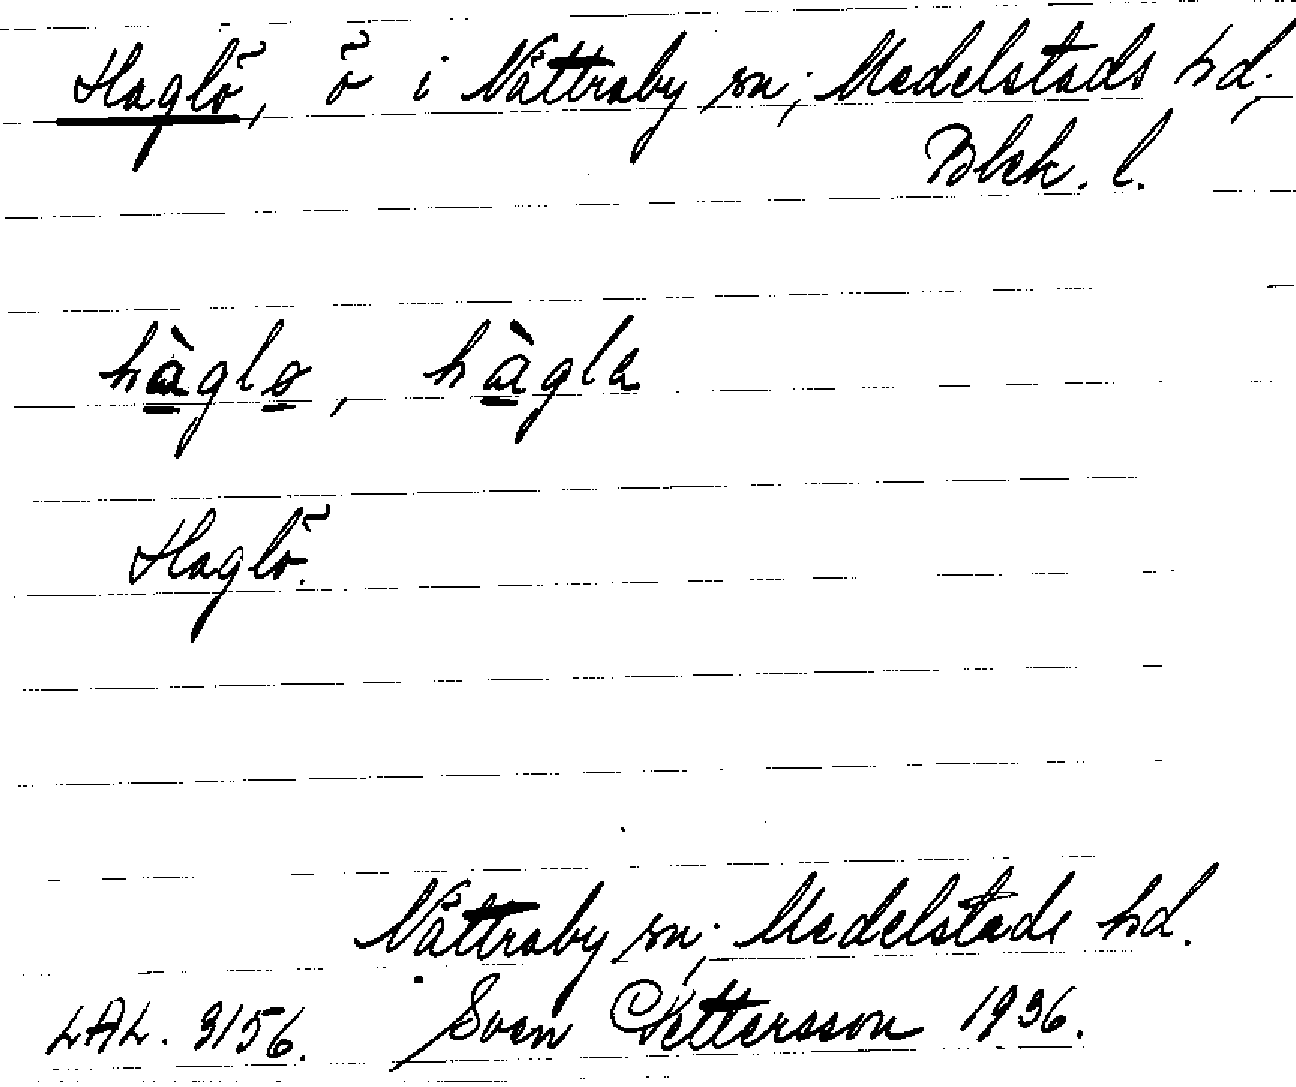 Haglö, ö i Nättraby sn; Medelstads hd,
Blek. l.
hàglo, hàgla
Haglö.
Nättraby sn; Medelstads hd.
LAL. 3156. Sven Pettersson 1936.